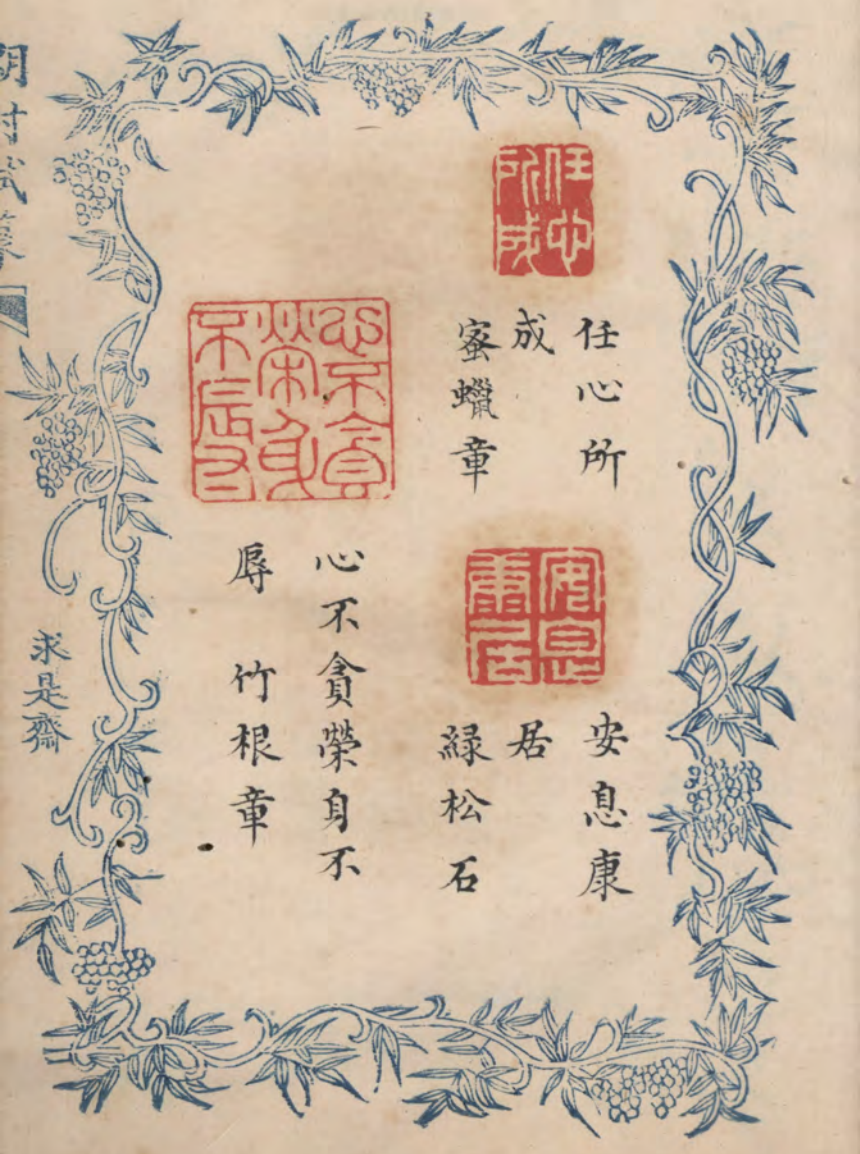 任心
所成
任心所
成
蜜蠟章
安息
康居
安息康
居
綠松石
心不貪
榮身
不辱
心不貪榮身不
辱 竹根章
求是齋